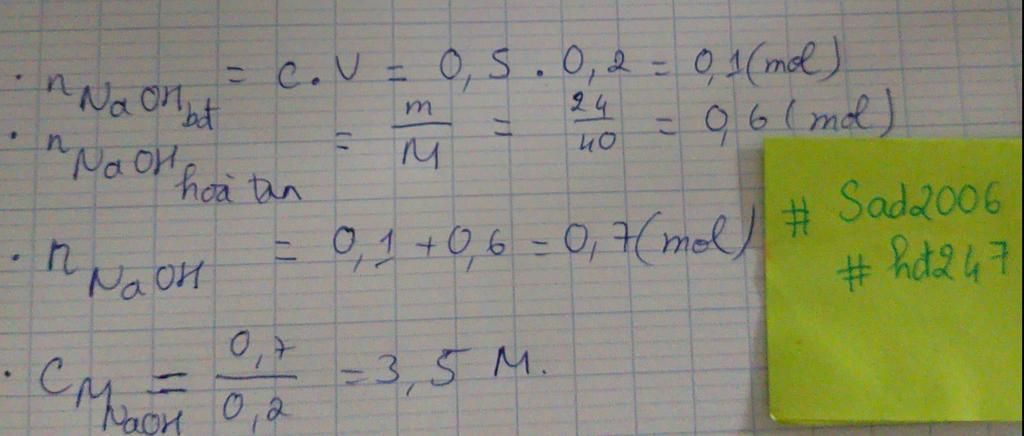 · nNaOHbđ = C.V = 0,5 . 0,2 = 0,1(mol)
· nNaOH hoà tan = m/M = 24/40 = 0,6 (mol)
· nNaOH = 0,1 + 0,6 = 0,7(mol)
· CM NaOH = 0,7/0,2 = 3,5 M.
# Sad2006
# hdt247